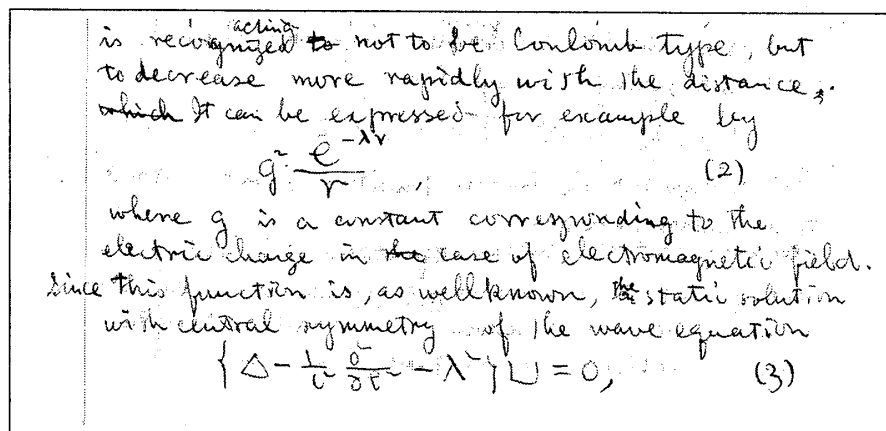 acting
is recognized to not to be Coulomb type, but
to decrease more rapidly with the distance.
which It can be expressed for example by
g² e^{-λr}/r, (2)
where g is a constant corresponding to the
electric charge in the case of electromagnetic field.
Since this function is, as wellknown, the static solution
with central symmetry of the wave equation
{Δ - 1/c² ∂²/∂t² - λ²} U = 0, (3)